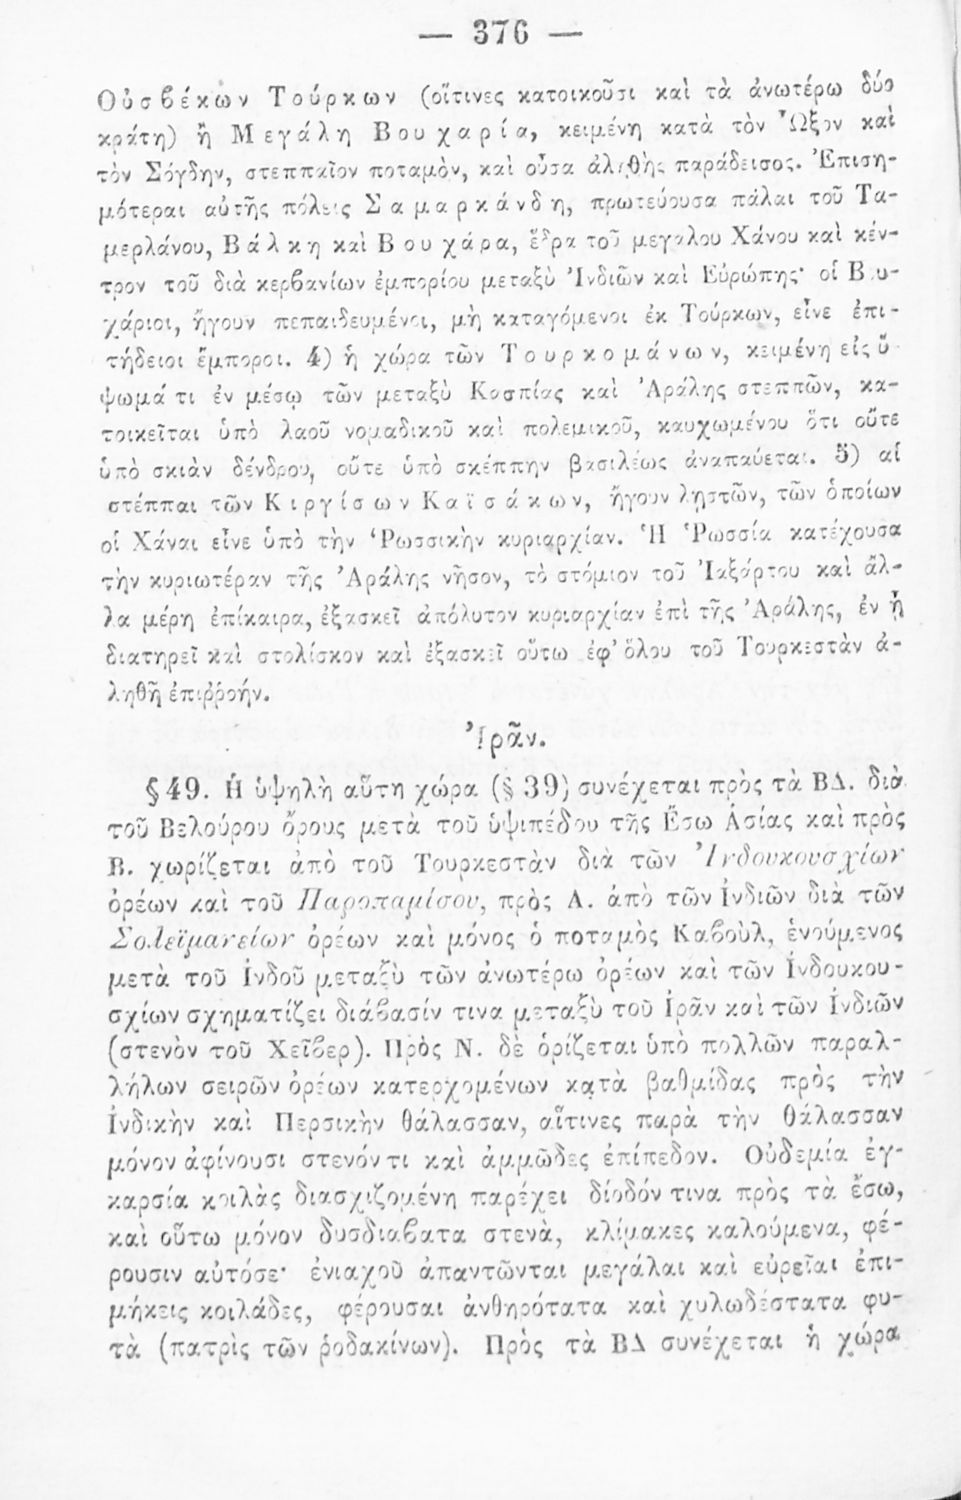 — 376 —
Οὐσβέκων Τούρκων (οἵτινες κατοικοῦσι καὶ τὰ ἀνωτέρω δύο
κράτη) ἢ Μεγάλη Βουχαρία, κειμένη κατὰ τὸν Ὦξον καὶ
τὸν Σόγδην, στεππαῖον ποταμὸν, καὶ οὖσα ἀληθὴς παράδεισος. Ἐπιση-
μότεραι αὐτῆς πόλεις Σαμαρκάνδη, πρωτεύουσα πάλαι τοῦ Τα-
μερλάνου, Βάλκη καὶ Βουχάρα, ἕδρα τοῦ μεγάλου Χάνου καὶ κέν-
τρον τοῦ διὰ κερβανίων ἐμπορίου μεταξὺ Ἰνδιῶν καὶ Εὐρώπης· οἱ Βου-
χάριοι, ἤγουν πεπαιδευμένοι, μὴ καταγόμενοι ἐκ Τούρκων, εἶνε ἐπι-
τήδειοι ἔμποροι. 4) ἡ χώρα τῶν Τουρκομάνων, κειμένη εἰς ὕ-
ψωμά τι ἐν μέσῳ τῶν μεταξὺ Κασπίας καὶ Ἀράλης στεππῶν, κα-
τοικεῖται ὑπὸ λαοῦ νομαδικοῦ καὶ πολεμικοῦ, καυχωμένου ὅτι οὔτε
ὑπὸ σκιὰν δένδρου, οὔτε ὑπὸ σκέππην βασιλέως ἀναπαύεται. 5) αἱ
στέππαι τῶν Κιργίσων Καϊσάκων, ἤγουν λῃστῶν, τῶν ὁποίων
οἱ Χάναι εἶνε ὑπὸ τὴν Ῥωσσικὴν κυριαρχίαν. Ἡ Ῥωσσία κατέχουσα
τὴν κυριωτέραν τῆς Ἀράλης νῆσον, τὸ στόμιον τοῦ Ἰαξάρτου καὶ ἄλ-
λα μέρη ἐπίκαιρα, ἐξασκεῖ ἀπόλυτον κυριαρχίαν ἐπὶ τῆς Ἀράλης, ἐν ᾗ
διατηρεῖ καὶ στολίσκον καὶ ἐξασκεῖ οὕτω ἐφ' ὅλου τοῦ Τουρκεστὰν ἀ-
ληθῆ ἐπιῤῥοήν.
Ἰρᾶν.
§ 49. Ἡ ὑψηλὴ αὕτη χώρα (§ 39) συνέχεται πρὸς τὰ ΒΔ. διὰ
τοῦ Βελούρου ὄρους μετὰ τοῦ ὑψιπέδου τῆς Ἔσω Ἀσίας καὶ πρὸς
Β. χωρίζεται ἀπὸ τοῦ Τουρκεστὰν διὰ τῶν Ἰνδουκουσχίων
ὀρέων καὶ τοῦ Παροπαμίσου, πρὸς Α. ἀπὸ τῶν Ἰνδιῶν διὰ τῶν
Σολεϊμανείων ὀρέων καὶ μόνος ὁ ποταμὸς Καβοὺλ, ἑνούμενος
μετὰ τοῦ Ἰνδοῦ μεταξὺ τῶν ἀνωτέρω ὀρέων καὶ τῶν Ἰνδουκου-
σχίων σχηματίζει διάβασίν τινα μεταξὺ τοῦ Ἰρᾶν καὶ τῶν Ἰνδιῶν
(στενὸν τοῦ Χεῖβερ). Πρὸς Ν. δὲ ὁρίζεται ὑπὸ πολλῶν παραλ-
λήλων σειρῶν ὀρέων κατερχομένων κατὰ βαθμίδας πρὸς τὴν
Ἰνδικὴν καὶ Περσικὴν θάλασσαν, αἵτινες παρὰ τὴν θάλασσαν
μόνον ἀφίνουσι στενόν τι καὶ ἀμμῶδες ἐπίπεδον. Οὐδεμία ἐγ-
καρσία κοιλὰς διασχιζομένη παρέχει δίοδόν τινα πρὸς τὰ ἔσω,
καὶ οὕτω μόνον δυσδιαβατα στενὰ, κλίμακες καλούμενα, φέ-
ρουσιν αὐτόσε· ἐνιαχοῦ ἀπαντῶνται μεγάλαι καὶ εὐρεῖαι ἐπι-
μήκεις κοιλάδες, φέρουσαι ἀνθηρότατα καὶ χυλωδέστατα φυ-
τὰ (πατρὶς τῶν ῥοδακίνων). Πρὸς τὰ ΒΔ συνέχεται ἡ χώρα